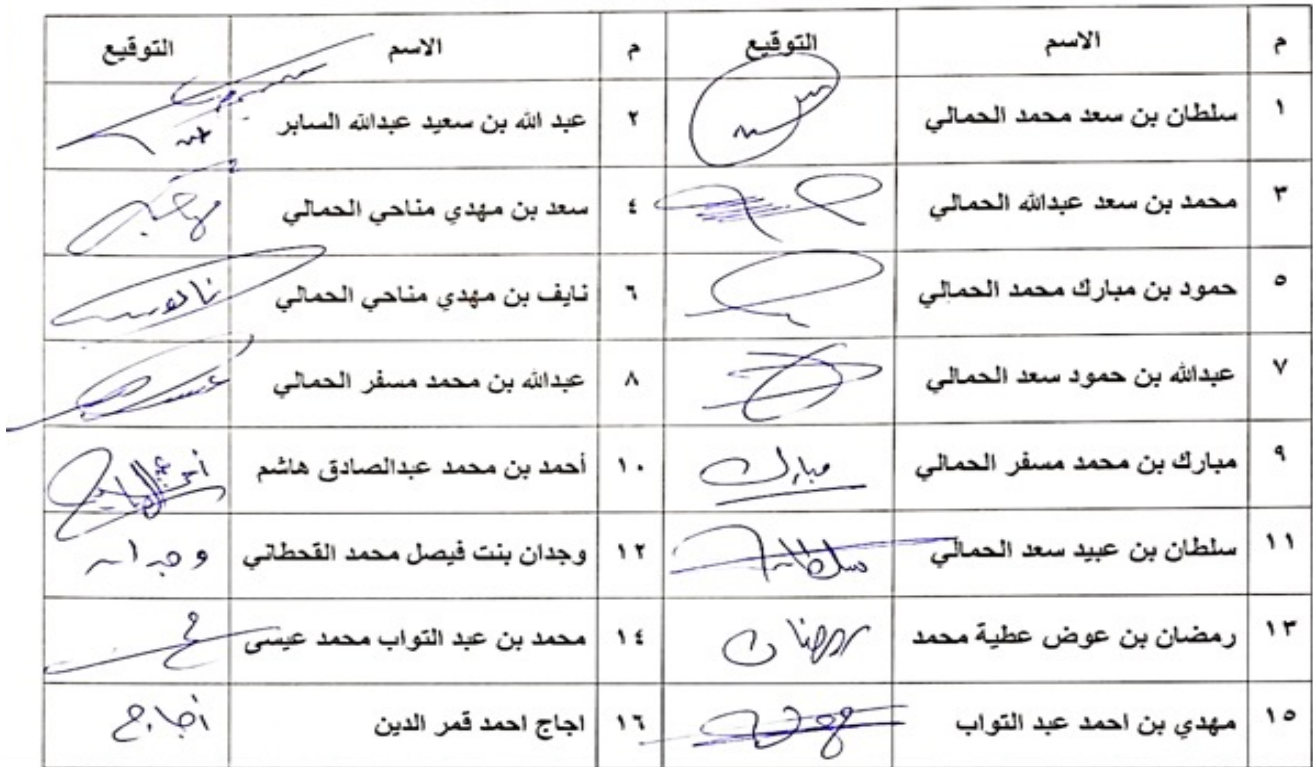 م الاسم التوقيع م الاسم التوقيع
١ سلطان بن سعد محمد الحمالي ٢ عبد الله بن سعيد عبدالله السابر
٣ محمد بن سعد عبدالله الحمالي ٤ سعد بن مهدي مناحي الحمالي
٥ حمود بن مبارك محمد الحمالي ٦ نايف بن مهدي مناحي الحمالي
٧ عبدالله بن حمود سعد الحمالي ٨ عبدالله بن محمد مسفر الحمالي
٩ مبارك بن محمد مسفر الحمالي مبارك ١٠ أحمد بن محمد عبدالصادق هاشم
١١ سلطان بن عبيد سعد الحمالي سلطان ١٢ وجدان بنت فيصل محمد القحطاني وجدان
١٣ رمضان بن عوض عطية محمد رمضان ١٤ محمد بن عبد التواب محمد عيسى
١٥ مهدي بن احمد عبد التواب ١٦ اجاج احمد قمر الدين أجاج